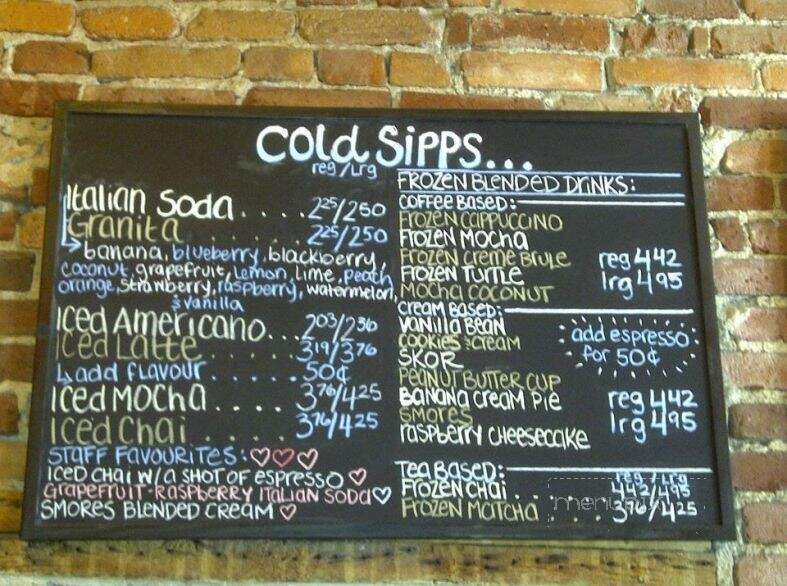 Cold Sipps...
reg/Lrg
Italian Soda....2 25/2 50
Granita.......2 25/2 50
banana, blueberry, blackberry,
coconut, grapefruit, Lemon, lime, Peach,
orange, strawberry, raspberry, watermelon,
& vanilla
Iced Americano...2 03/2 36
Iced Latte......3 19/3 76
add flavour......50¢
Iced Mocha....3 76/4 25
Iced Chai......3 76/4 25
STAFF FAVOURITES:
ICED CHAI W/A SHOT OF ESPRESSO
GRAPEFRUIT-RASPBERRY ITALIAN SODA
SMORES BLENDED CREAM
FROZEN BLENDED DRINKS:
COFFEE BASED:
FROZEN CAPPUCCINO
FROZEN MOCHA
FROZEN CREME BRULE
FROZEN TURTLE
MOCHA COCONUT
reg 4 42
lrg 4 95
CREAM BASED:
VANILLA BEAN
COOKIES & CREAM
SKOR
PEANUT BUTTER CUP
BANANA CREAM PIE
SMORES
RASPBERRY CHEESECAKE
add espresso
for 50¢
reg 4 42
lrg 4 95
TEA BASED:
reg / Lrg
FROZEN CHAI...4 42/4 95
FROZEN MATCHA....3 76/4 25